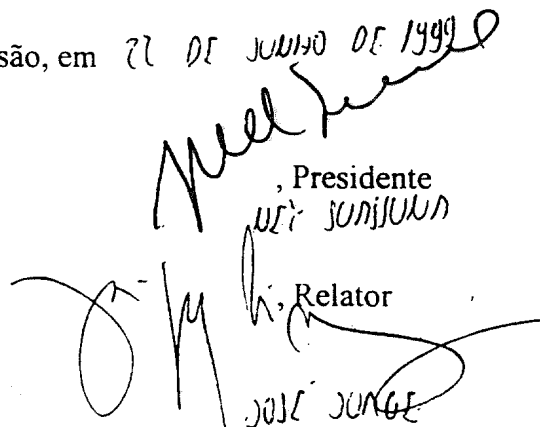 são, em 22 DE JUNHO DE 1999
, Presidente
NEY SUASSUNA
, Relator
JOSÉ JORGE